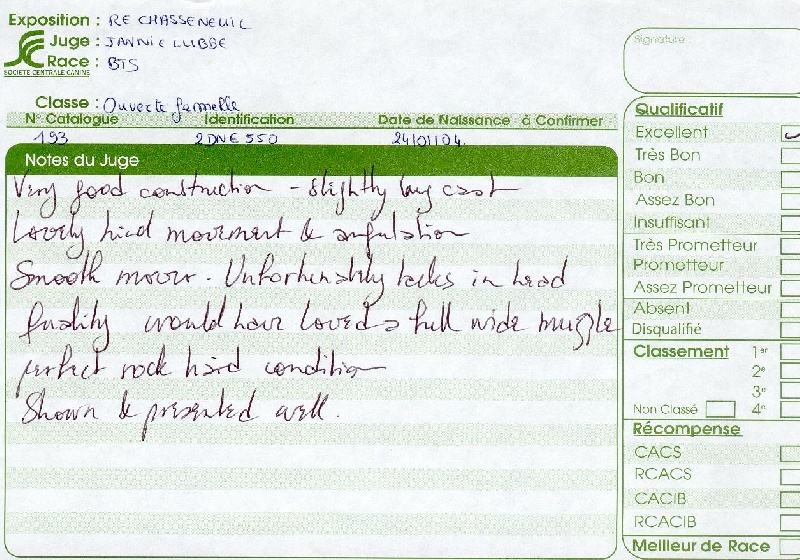 Exposition : RE CHASSENEUIL
Juge : JANNIE LUBBE
Race : BTS
SOCIÉTÉ CENTRALE CANINE
Classe : Ouverte femelle
N° Catalogue Identification Date de Naissance à Confirmer
193 2DNE 550 24/01/04
Notes du Juge
Very good construction - slightly long cast
Lovely hind movement & angulation
Smooth mover. Unfortunately lacks in head
quality would have loved a full wide muzzle
perfect rock hard condition
Shown & presented well.
Signature :
Qualificatif
Excellent
Très Bon
Bon
Assez Bon
Insuffisant
Très Prometteur
Prometteur
Assez Prometteur
Absent
Disqualifié
Classement 1er
2e
3e
Non Classé 4e
Récompense
CACS
RCACS
CACIB
RCACIB
Meilleur de Race